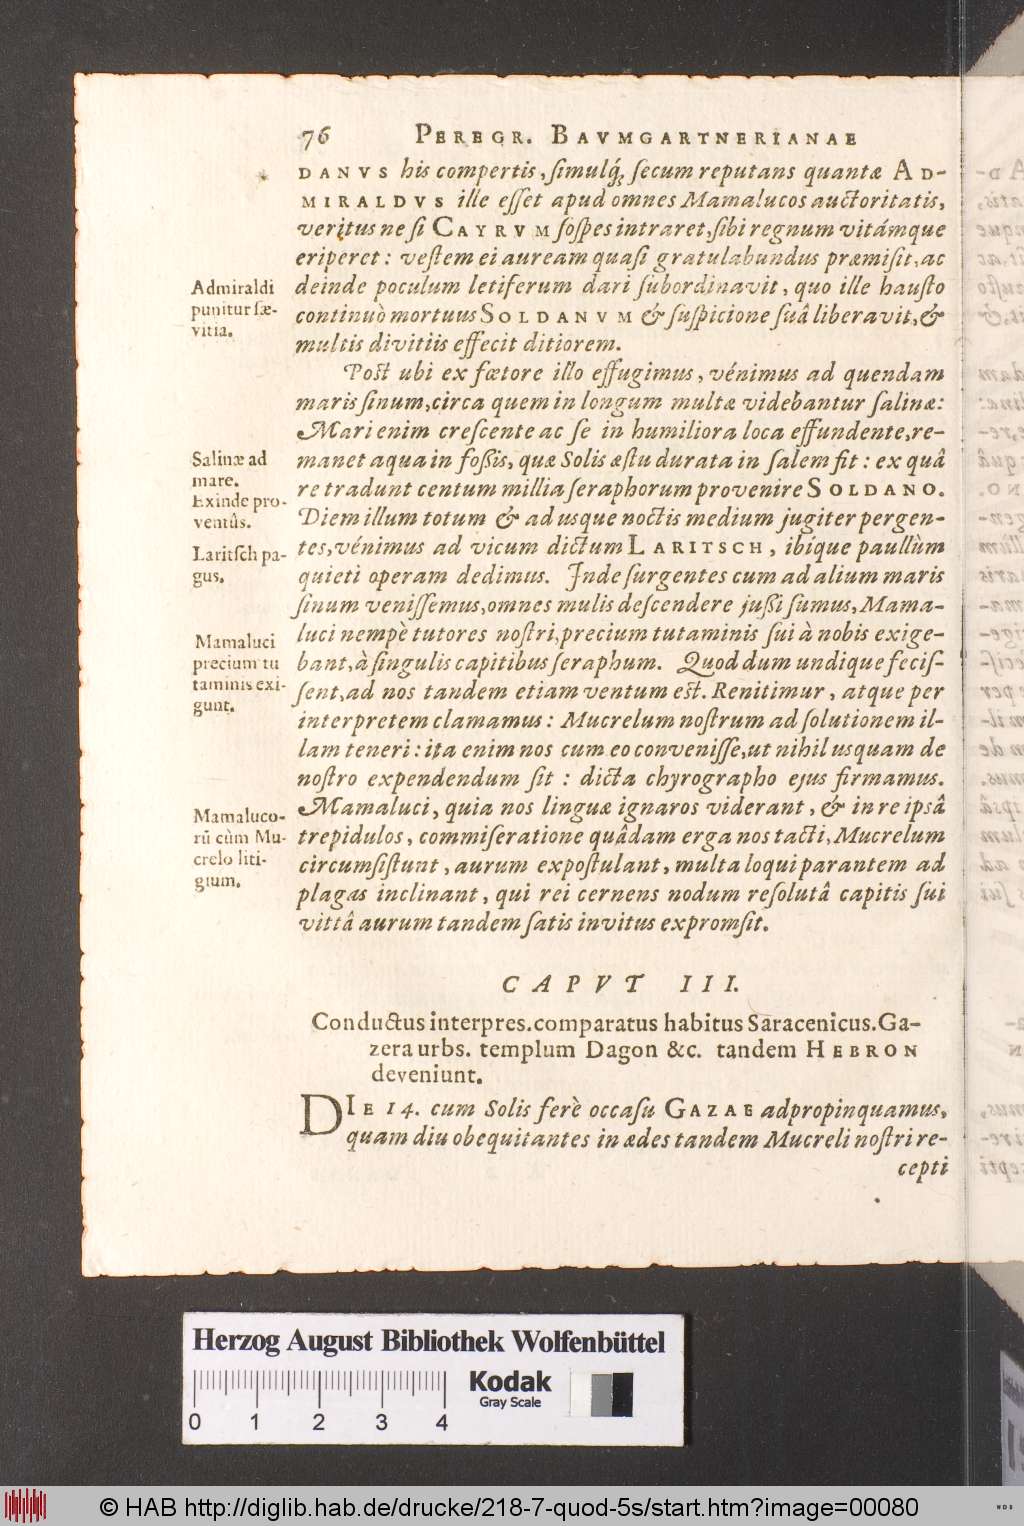 76 PEREGR. BAVMGARTNERIANAE
DANVS his compertis, ſimulq́ꝫ ſecum reputans quantæ AD-
MIRALDVS ille eſſet apud omnes Mamalucos auctoritatis,
veritus ne ſi CAYRVM ſoſpes intraret, ſibi regnum vitámque
eriperet: veſtem ei auream quaſi gratulabundus præmiſit, ac
deinde poculum letiferum dari ſubordinavit, quo ille hauſto
continuò mortuus SOLDANVM & ſuſpicione ſuâ liberavit, &
multis divitiis effecit ditiorem.
Admiraldi
punitur ſæ-
vitia.
Poſt ubi ex fœtore illo effugimus, vénimus ad quendam
maris ſinum, circa quem in longum multæ videbantur ſalinæ:
Mari enim creſcente ac ſe in humiliora loca effundente, re-
manet aqua in foſsis, quæ Solis æſtu durata in ſalem fit: ex quâ
re tradunt centum millia ſeraphorum provenire SOLDANO.
Diem illum totum & ad usque noctis medium jugiter pergen-
tes, vénimus ad vicum dictum LARITSCH, ibíque paullùm
quieti operam dedimus. Inde ſurgentes cum ad alium maris
ſinum veniſſemus, omnes mulis deſcendere juſsi ſumus, Mama-
luci nempè tutores noſtri, precium tutaminis ſui à nobis exige-
bant, à ſingulis capitibus ſeraphum. Quod dum undique feciſ-
ſent, ad nos tandem etiam ventum eſt. Renitimur, atque per
interpretem clamamus: Mucrelum noſtrum ad ſolutionem il-
lam teneri: ita enim nos cum eo conveniſſe, ut nihil usquam de
noſtro expendendum ſit: dicta chyrographo ejus firmamus.
Mamaluci, quia nos linguæ ignaros viderant, & in re ipsâ
trepidulos, commiſeratione quâdam erga nos tacti, Mucrelum
circumſiſtunt, aurum expoſtulant, multa loqui parantem ad
plagas inclinant, qui rei cernens nodum reſolutâ capitis ſui
vittâ aurum tandem ſatis invitus expromſit.
Salinæ ad
mare.
Exinde pro-
ventûs.
Laritſch pa-
gus.
Mamaluci
precium tu
taminis exi-
gunt.
Mamaluco-
rũ cùm Mu-
crelo liti-
gium.
CAPVT III.
Conductus interpres. comparatus habitus Saracenicus. Ga-
zera urbs. templum Dagon &c. tandem HEBRON
deveniunt.
DIE 14. cum Solis ferè occaſu GAZAE adpropinquamus,
quam diu obequitantes in ædes tandem Mucreli noſtri re-
cepti
Herzog August Bibliothek Wolfenbüttel
0 1 2 3 4
Kodak
Gray Scale
© HAB http://diglib.hab.de/drucke/218-7-quod-5s/start.htm?image=00080